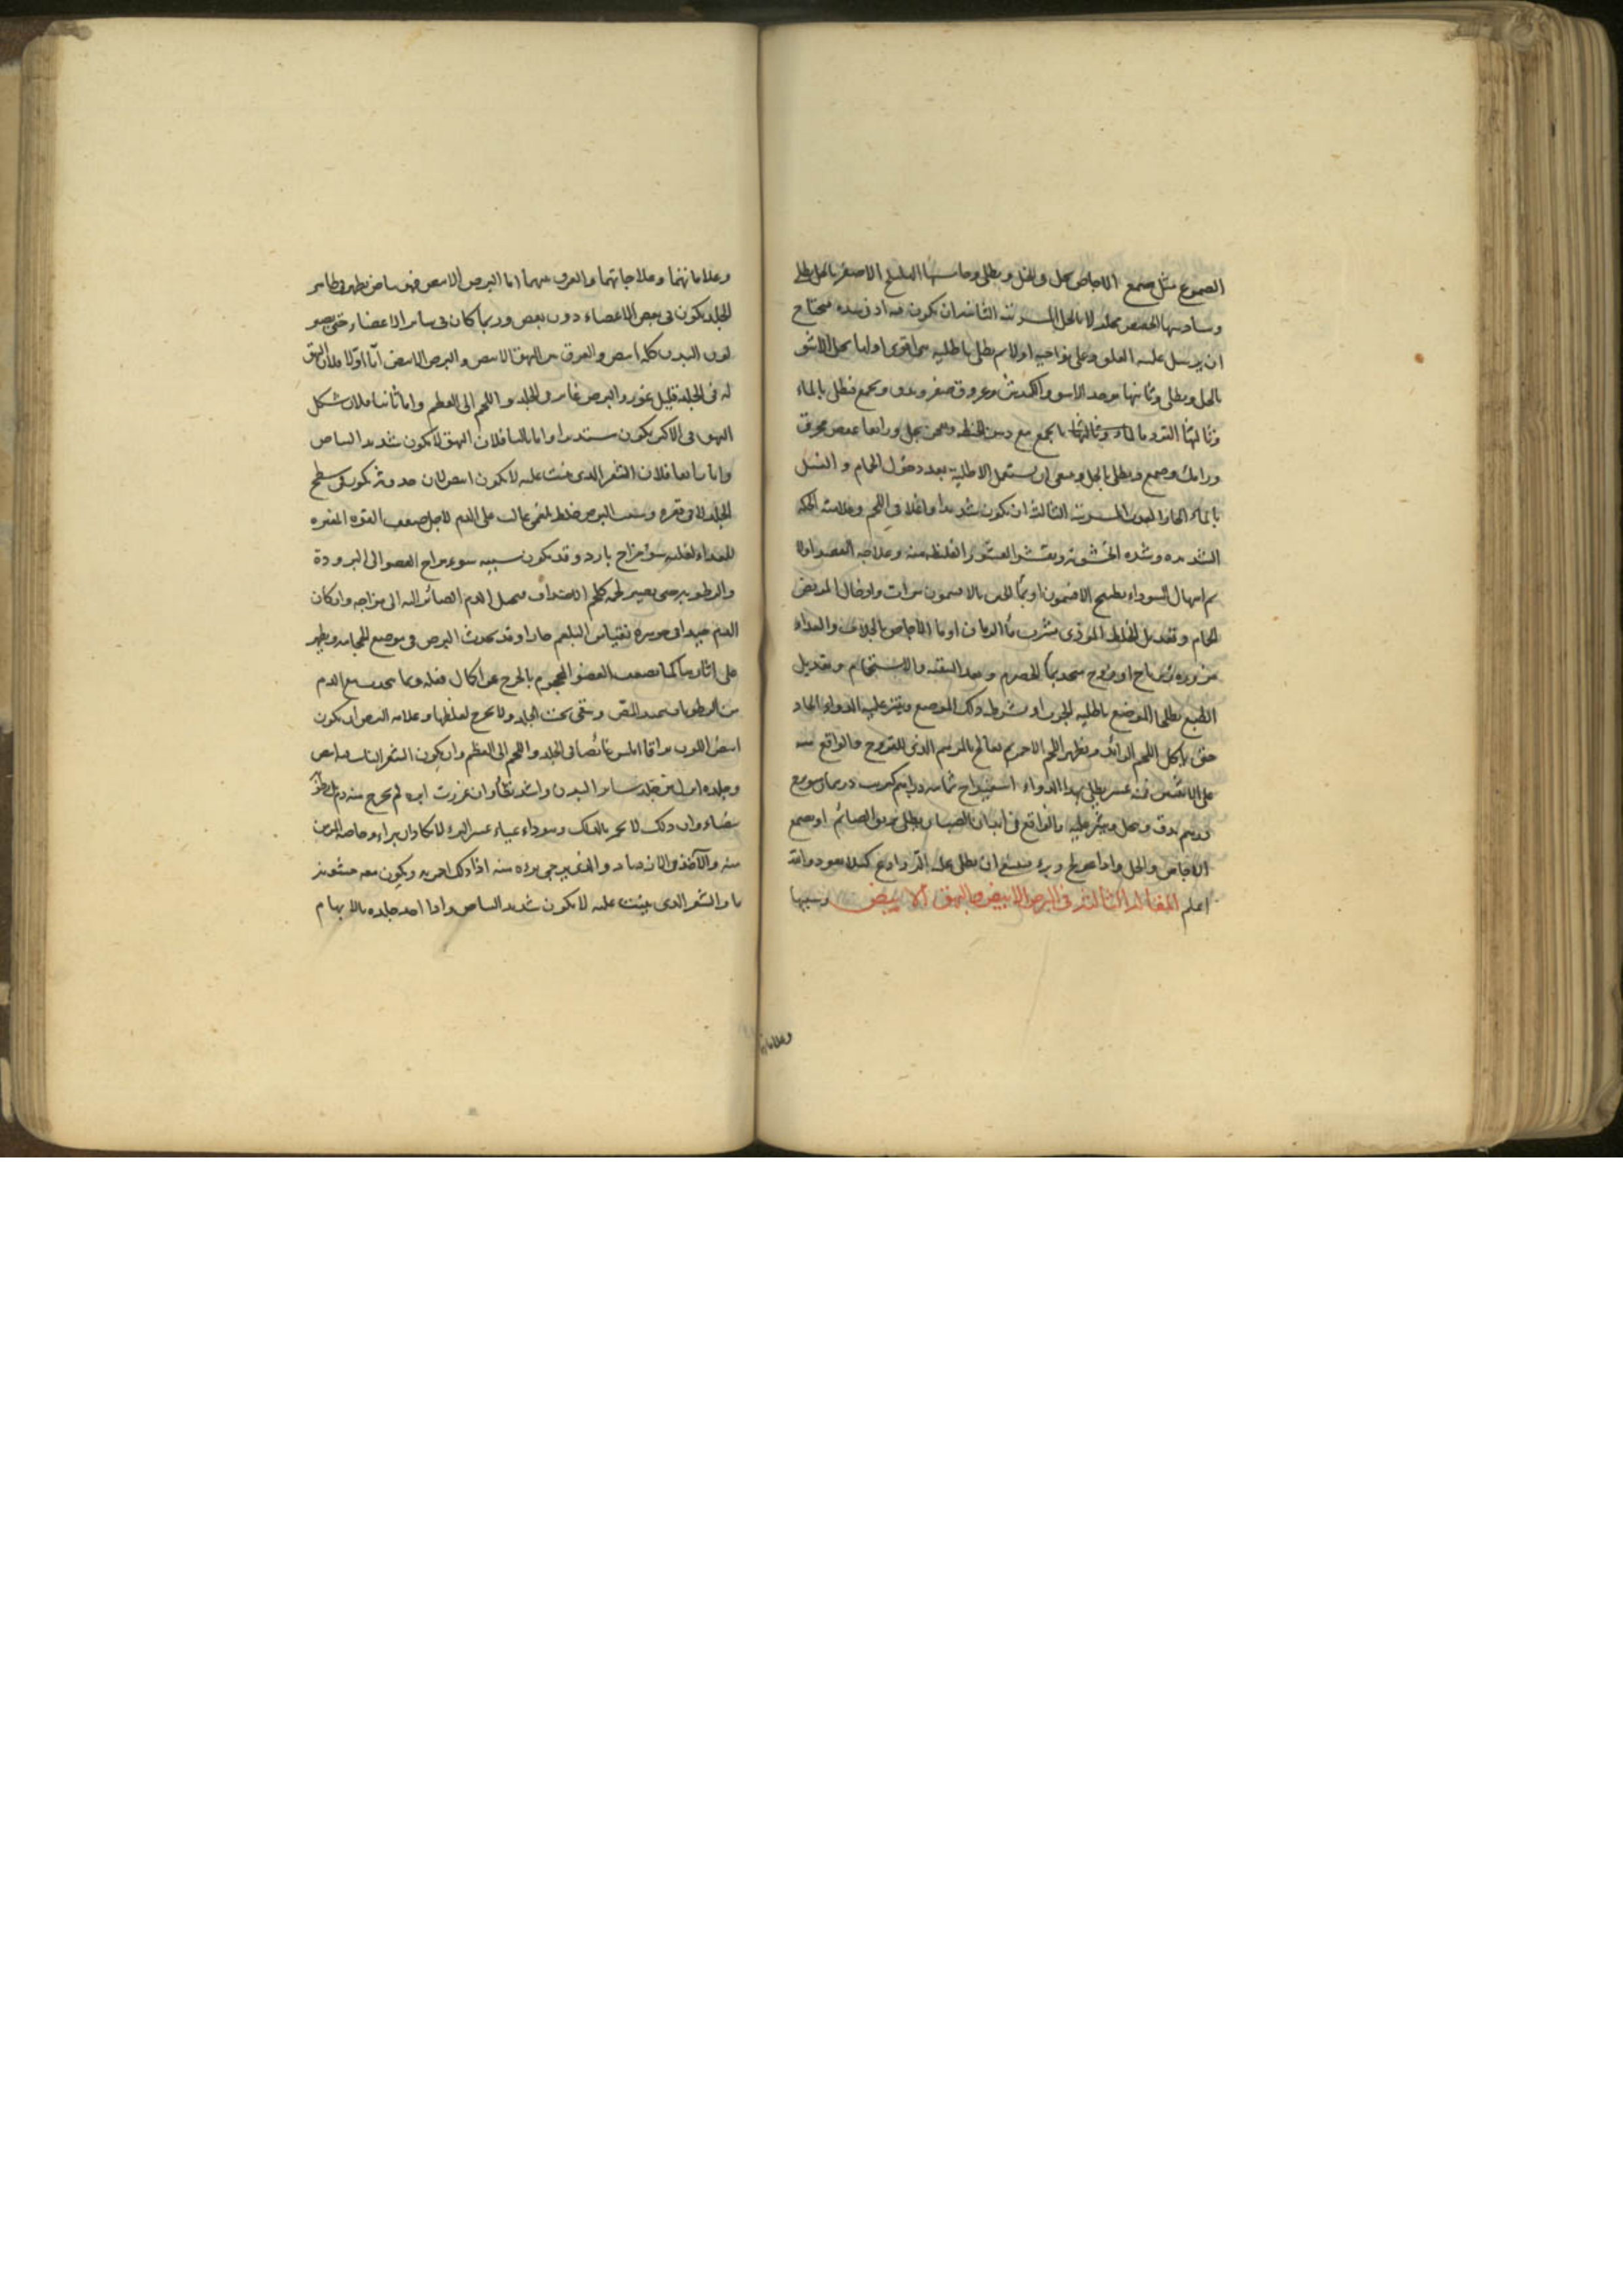 الصموغ مثل صمغ الاجاص بخل ويطلى وخامسها الهليلج الاصفر بالخل يطلى
وسادسها الحضض محلولا بالخل المرتبة الثانية ان يكون فيه ادنى شدة فيحتاج
ان يرسل عليه العلق وعلى نواحيه اولا ثم يطلى باطلية هى اقوى اولها بخل الاشق
بالخل ويطلى وثانيها يوخذ الاسو والكندش وعروق صفر ويدق ويجمع فيطلى بالماء
وثالثها بالماء وثالثها يجمع مع دهن الحنطة بخل ورابعا عفص محرق
وصمغ ويطلى بالخل وينبغى ان يستعمل الاطلية بعد دخول الحمام و الغسل
بالماء الحار المرتبة الثالثة ان يكون شديدا داخلا فى اللحم وعلامته الحكة
الشديدة وشدة الخشونة وتقشر القشور الغليظة منه وعلاجه الفصد اولا
ثم اسهال السوداء بطبيخ الافتيمون او بماء الجبن بالافتيمون مرات وادخال المريض
الحمام وتعديل الخلط الموذى بشرب ماء الرمان او ماء الاجاص بالجلاب والغذاء
مزورة او فروج متخذ بماء الحصرم وبعد التنقية والاستحمام وتعديل
الطبع يطلى الموضع باطلية الجرب او يشرط ذلك الموضع وينثر عليه الدواء الحاد
حتى ياكل اللحم الزائد ويظهر اللحم الاحمر ثم يعالج بالمرهم الذى للقروح والواقع منه
على الانف يطلى بهذا الدواء اسفيداج ثمانية دراهم كبريت درهمان
درهم يدق وينخل وينثر عليه والواقع فى ابدان الصبيان يطلى بريق الصائم او صمغ
الاجاص والخل واذا عولج وبرء فينبغى ان يطلى عليه كيلا يعود والله
اعلم المقالة الثالثة فى البرص الابيض والبهق الابيض وسببها
وعلاماتهما
وعلاماتهما وعلاجاتهما والفرق بينهما اما البرص الابيض فهو بياض يظهر فى ظاهر
الجلد يكون فى بعض الاعضاء دون بعض وربما كان فى سائر الاعضاء حتى يصير
لون البدن كله ابيض والفرق بين البهق الابيض والبرص الابيض اما اولا فلان البهق
له فى الجلد قليل غور والبرص غائر فى الجلد واللحم الى العظم واما ثانيا فلان شكل
البهق فى الاكثر يكون مستديرا واما ثالثا فلان البهق لا يكون شديد البياض
واما رابعا فلان الشعر الذى ينبت عليه لا يكون ابيض لان حدوثه يكون فى سطح
الجلد لا فى قعره وسبب البرص خلط بلغمى غالب على الدم لاجل ضعف القوة المغيرة
للغذاء لغلبة سوء مزاج بارد وقد يكون سببه سوء مزاج العضو الى البرودة
والرطوبة حتى يصير لحمه كلحم الاصداف فيحيل الدم الصائر اليه الى مزاجه وان كان
الدم جيدا فى جوهره نقيا من البلغم حارا وقد يحدث البرص فى موضع المحاجم ويظهر
على اثارها لما يضعف العضو المحجوم بالجرح عن اكمال فعله وبما يحدث مع الدم
من الرطوبات عند المص وتبقى تحت الجلد ولا تخرج لغلظها وعلامة البرص ان يكون
ابيض اللون براقا املس غائصا فى الجلد واللحم الى العظم وان يكون الشعر النابت فيه ابيض
وجلده الين من جلد سائر البدن واشد تطامنا وان غرزت ابرة لم يخرج منه دم بل رطوبة
بيضاء وان دلك لا يحمر بالدلك وهو داء عياء عسر البرء لا يكاد ان يبرأ وخاصة المزمن
منه والآخذ فى الازدياد والذى يرجى برءه منه اذا دلك احمر ويكون معه خشونة
ما والشعر الذى ينبت عليه لا يكون شديد البياض واذا اخذ جلده بالابهام